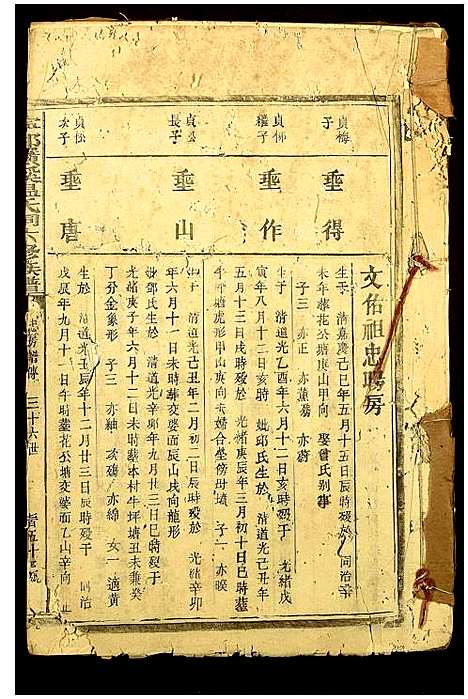 文佑祖忠聘房
貞梅
子
垂得
生于 清嘉慶己巳年五月十五日辰時歿於 同治辛
未年葬花公塘庚山甲向 娶曾氏别事
子三 亦蕙 亦正 亦蔚
貞柳
繼子
垂作
生于 清道光乙酉年六月十二日亥時歿于 光緒戊
寅年八月十二日亥時 妣邱氏生於 清道光己丑年
五月十三日戌時歿於 光緒庚辰年三月初十日巳時葬
虎形甲山庚向夫婦合墓傍母墳 子一 亦曖
貞松
長子
垂山
生于 清道光己丑年二月初二日辰時歿於 光緒辛卯
年六月十一日未時葬交婆面辰山戌向龍形
妣邱氏生於 清道光辛卯年九月廿三日巳時歿于
光緒庚子年六月十二日未時葬本村牛坪塘丑未兼癸
丁分金象形 子三 亦紬 亦綿 女一 適黄
貞松
次子
垂唐
生於 清道光壬辰年十二月廿三日辰時歿于 同治
戊辰年九月十一日午時葬花公塘交婆面乙山辛向
氏祠六修族譜
三十六世